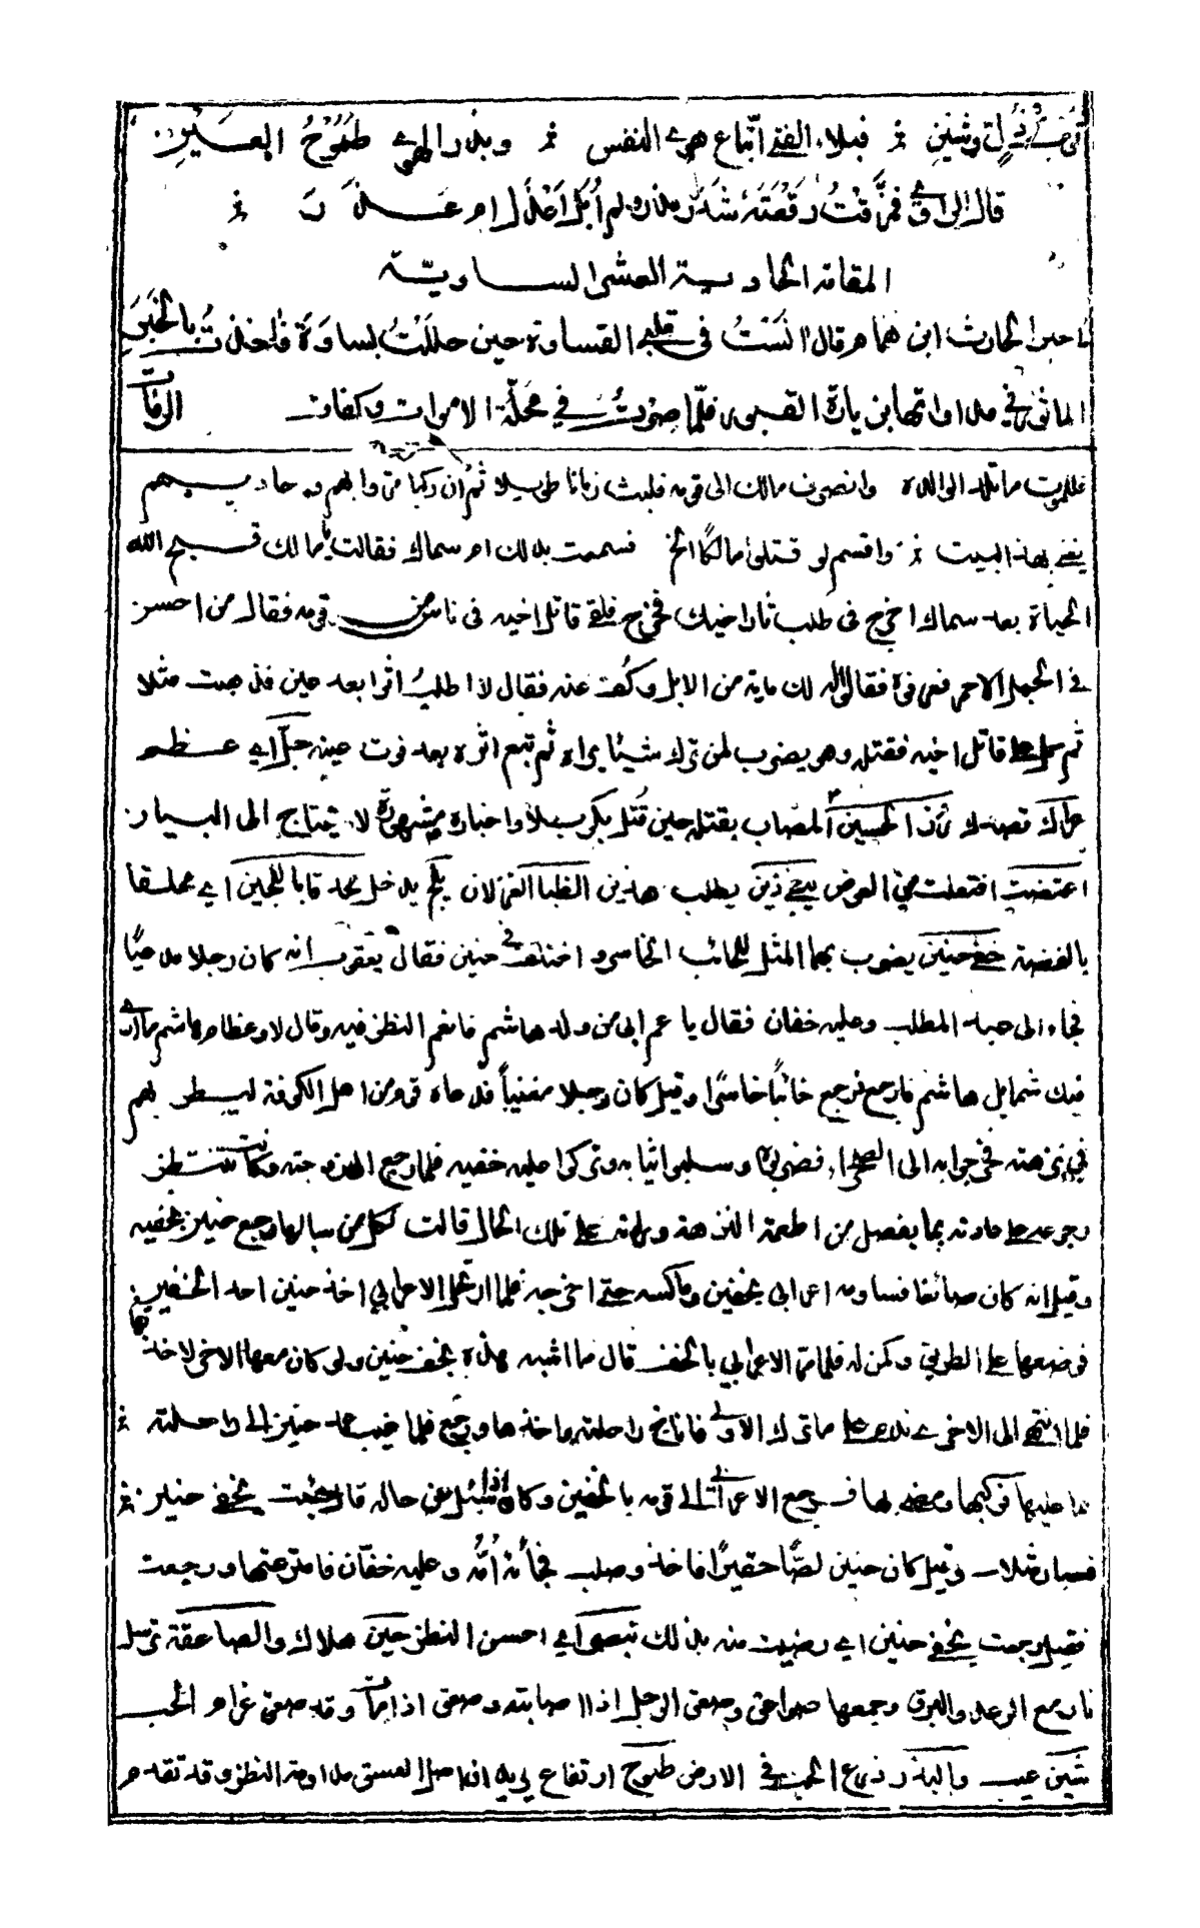 ثوب ذل وشين ∴ فبلاء الفتى اتّباع هوى النفس ∴ وبذر الهوى طموح العين
قال الراوى فمزّقتُ رقعته شذر مذر ولم أبل أعذل ام عذر
المقامة الحادية العشر الساوية
احبر الحارث ابن همام قال آنست فى قلبى القساوة حين حللت بساوة فاخذت بالخبر
الماثور فى مداواتها بزيارة القبور فلمّا صرت فى محلّة الاموات وكفات الرفات
فللموت ما تلد الوالدة وانصرف مالك الى قومه فلبث زمانا طويلا ثم ان ركبا مرّوا بهم وحاديهم
يغنى بهذا البيت ∴ واقسم لو قتلوا مالكا الخ فسمعت بذلك ام سماك فقالت يا مالك قبح الله
الحياة بعد سماك اخرج فى طلب ثار اخيك فخرج فلقى قاتل اخيه فى ناس من قومه فقال من احسن
فى الجمل الاحمر فعرفوه فقالوا له لك ماية من الابل وكف عنه فقال لا اطلب اثرا بعد عين فذهبت مثلا
ثم حمل على قاتل اخيه فقتله وهو يضرب لمن ترك شيئا يراه ثم تبع اثره بعد فوت عينه جلّ اى عظم
عراك قصدك رُزء الحسين المصاب بقتله حين قتل بكربلا واخباره مشهورة لا تحتاج الى البيان
اعتضت افتعلت من العوض يبغى ذين يطلب هذين الظبا الغزلان يلج يدخل لجد قابا للجين اى محلقا
بالفضة خفى حنين يضرب بهما المثل للخائب الخاسر واختلف فى حنين فقال يعقوب انه كان رجلا مدعيا
فجاء الى عبد المطلب وعليه خفان فقال يا عم انى من ولد هاشم فانعم النظر فيه وقال لا وعظام هاشم ما ارى
فيك شمايل هاشم فارجع فرجع خائبا خاسرا وقيل كان رجلا مغنيا فدعاه قوم من اهل الكوفة ليطرب بهم
فى نزهته فخرجوا به الى الصحراء فضربوه وسلبوا ثيابه وتركوا عليه خفيه فلما رجع الى زوجته وكانت تنتظر
رجوعه على عادته بما يفضل من اطعمة النزهة وراته على تلك الحال قالت لكل من سالها رجع حنين بخفيه
وقيل انه كان صائغا فساومه اعرابى بخفين وماكسه حتى اخرجه فلما ارتحل الاعرابي اخذ حنين احد الخفين
فوضعها على الطريق وكمن له فلما مر الاعرابي بالخف قال ما اشبه هذه بخف حنين ولو كان معها الاخرى لاخذتها
فلما انتهى الى الاخرى ندم على ما ترك الاولى فاناخ راحلته واخذها ورجع فلما غيب عمد حنين الى راحلته ∴
وما عليها فركبها ومضى بها فرجع الاعرابى الى قومه بالخفين وكان اذا سئل عن حاله قال جئت بخفى حنين ∴
فسار مثلا وقيل كان حنين لصّا حقيرا فاخذ وصلب فجأته أمّه وعليه خفّان فانتزعتهما ورجعت
فقيل رجعت بخفى حنين اى رضيت منه بذلك تبصر اى احسن النظر حين هلاك والصاعقة ترسل
نار مع الرعد والبرق وجمعها صواعق وصعق الرجل اذا اصابته وصعق اذا مات وقد صعق غرام الحب
شين عيب والبذر زرع الحب فى الارض طموح ارتفاع يريد انما اصل العشق مداومة النظر وقد تقدم